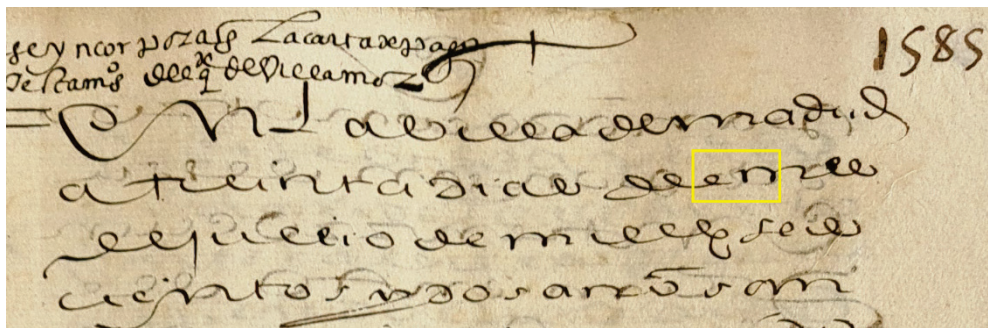 se yncorporase la carta de pago 1585
testamo del qe de Villamor
En la billa de madrid
a treinta dias del mes
de julio de mill e seis
cientos y dos años an